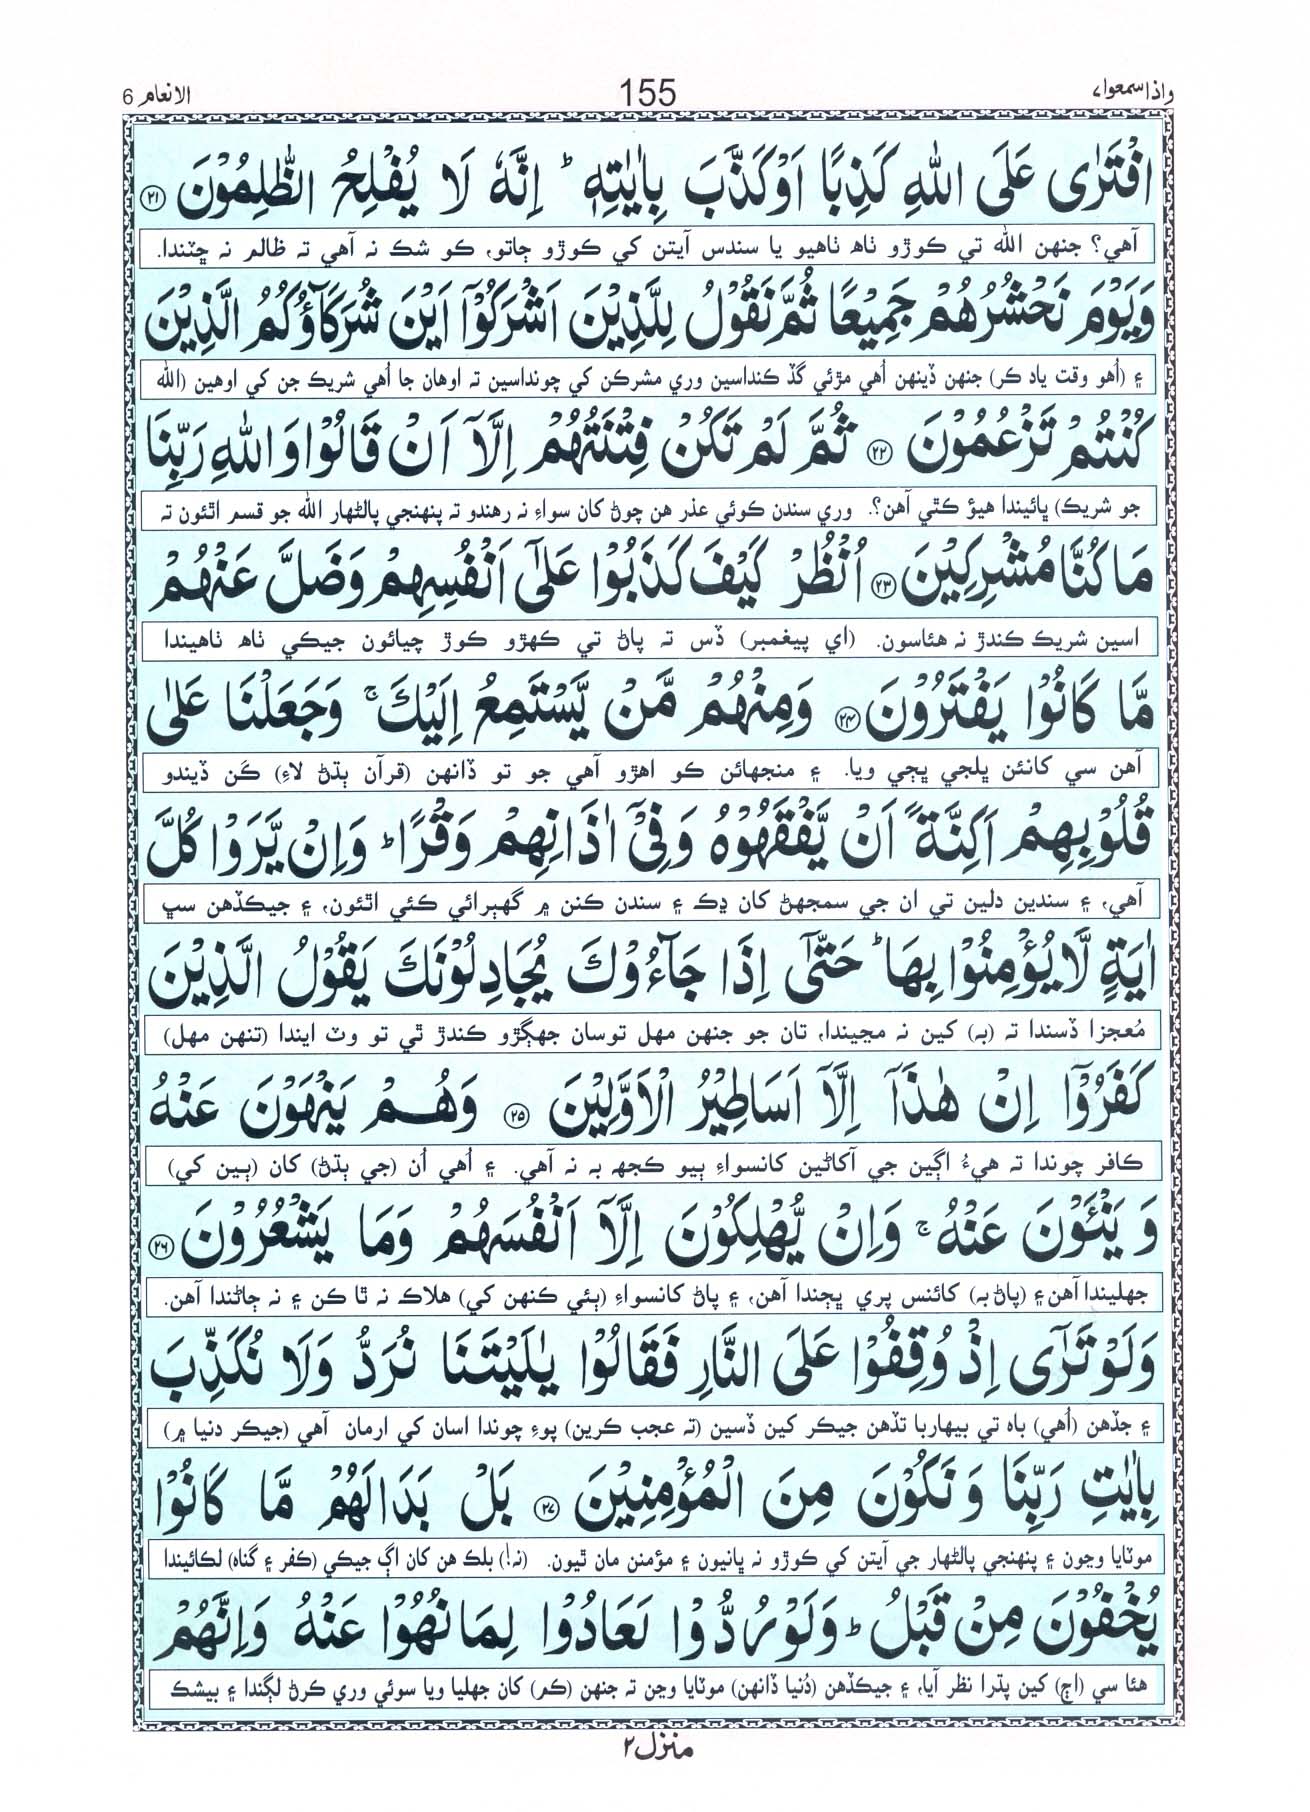 واذاسمعوا٧ 155 الانعام 6
افْتَرٰى عَلَى اللّٰهِ كَذِبًا اَوْ كَذَّبَ بِاٰيٰتِهٖ ؕ اِنَّهٗ لَا يُفْلِحُ الظّٰلِمُوْنَ ۝٢١
آهي؟ جنهن الله تي ڪوڙو ٺاھ ٺاهيو يا سندس آيتن کي ڪوڙو ڄاتو، ڪو شڪ نہ آهي تہ ظالم نہ ڇٽندا.
وَيَوْمَ نَحْشُرُهُمْ جَمِيْعًا ثُمَّ نَقُوْلُ لِلَّذِيْنَ اَشْرَكُوْۤا اَيْنَ شُرَكَآؤُكُمُ الَّذِيْنَ
۽ (اُهو وقت ياد ڪر) جنهن ڏينهن اُهي مڙئي گڏ ڪنداسين وري مشرڪن کي چونداسين تہ اوهان جا اُهي شريڪ جن کي اوهين (الله
كُنْتُمْ تَزْعُمُوْنَ ۝٢٢ ثُمَّ لَمْ تَكُنْ فِتْنَتُهُمْ اِلَّاۤ اَنْ قَالُوْا وَاللّٰهِ رَبِّنَا
جو شريڪ) ڀائيندا هيؤ ڪٿي آهن؟. وري سندن ڪوئي عذر هن چوڻ کان سواءِ نہ رهندو تہ پنهنجي پالڻهار الله جو قسم اٿئون تہ
مَا كُنَّا مُشْرِكِيْنَ ۝٢٣ اُنْظُرْ كَيْفَ كَذَبُوْا عَلٰۤى اَنْفُسِهِمْ وَضَلَّ عَنْهُمْ
اسين شريڪ ڪندڙ نہ هئاسون. (اي پيغمبر) ڏس تہ پاڻ تي ڪهڙو ڪوڙ چيائون جيڪي ٺاھ ٺاهيندا
مَّا كَانُوْا يَفْتَرُوْنَ ۝٢٤ وَمِنْهُمْ مَّنْ يَّسْتَمِعُ اِلَيْكَ ۚ وَجَعَلْنَا عَلٰى
آهن سي کانئن ڀلجي ڀڄي ويا. ۽ منجهائن ڪو اهڙو آهي جو تو ڏانهن (قرآن ٻڌڻ لاءِ) ڪَن ڏيندو
قُلُوْبِهِمْ اَكِنَّةً اَنْ يَّفْقَهُوْهُ وَفِيْۤ اٰذَانِهِمْ وَقْرًا ؕ وَاِنْ يَّرَوْا كُلَّ
آهي، ۽ سندين دلين تي ان جي سمجهڻ کان ڍڪ ۽ سندن ڪنن ۾ گهٻرائي ڪئي اٿئون، ۽ جيڪڏهن سڀ
اٰيَةٍ لَّا يُؤْمِنُوْا بِهَا ؕ حَتّٰۤى اِذَا جَآءُوْكَ يُجَادِلُوْنَكَ يَقُوْلُ الَّذِيْنَ
مُعجزا ڏسندا تہ (بہ) کين نہ مڃيندا، تان جو جنهن مهل توسان جهڳڙو ڪندڙ ٿي تو وٽ ايندا (تنهن مهل)
كَفَرُوْۤا اِنْ هٰذَاۤ اِلَّاۤ اَسَاطِيْرُ الْاَوَّلِيْنَ ۝٢٥ وَهُمْ يَنْهَوْنَ عَنْهُ
ڪافر چوندا تہ هيءُ اڳين جي آکاڻين کانسواءِ ٻيو ڪجهہ بہ نہ آهي. ۽ اُهي اُن (جي ٻڌڻ) کان (ٻين کي)
وَيَنْـَٔوْنَ عَنْهُ ۚ وَاِنْ يُّهْلِكُوْنَ اِلَّاۤ اَنْفُسَهُمْ وَمَا يَشْعُرُوْنَ ۝٢٦
جهليندا آهن ۽ (پاڻ بہ) کائنس پري ڀڄندا آهن، ۽ پاڻ کانسواءِ (ٻئي ڪنهن کي) هلاڪ نہ ٿا ڪن ۽ نہ ڄاڻندا آهن.
وَلَوْ تَرٰۤى اِذْ وُقِفُوْا عَلَى النَّارِ فَقَالُوْا يٰلَيْتَنَا نُرَدُّ وَلَا نُكَذِّبَ
۽ جڏهن (اُهي) باھ تي بيهاريا تڏهن جيڪر کين ڏسين (تہ عجب ڪرين) پوءِ چوندا اسان کي ارمان آهي (جيڪر دنيا ۾)
بِاٰيٰتِ رَبِّنَا وَنَكُوْنَ مِنَ الْمُؤْمِنِيْنَ ۝٢٧ بَلْ بَدَالَهُمْ مَّا كَانُوْا
موٽايا وڃون ۽ پنهنجي پالڻهار جي آيتن کي ڪوڙو نہ ڀانيون ۽ مؤمنن مان ٿيون. (نہ!) بلڪ هن کان اڳ جيڪي (ڪفر ۽ گناھ) لڪائيندا
يُخْفُوْنَ مِنْ قَبْلُ ؕ وَلَوْ رُدُّوْا لَعَادُوْا لِمَا نُهُوْا عَنْهُ وَاِنَّهُمْ
هئا سي (اڄ) کين پڌرا نظر آيا، ۽ جيڪڏهن (دُنيا ڏانهن) موٽايا وڃن تہ جنهن (ڪم) کان جهليا ويا سوئي وري ڪرڻ لڳندا ۽ بيشڪ
منزل٢